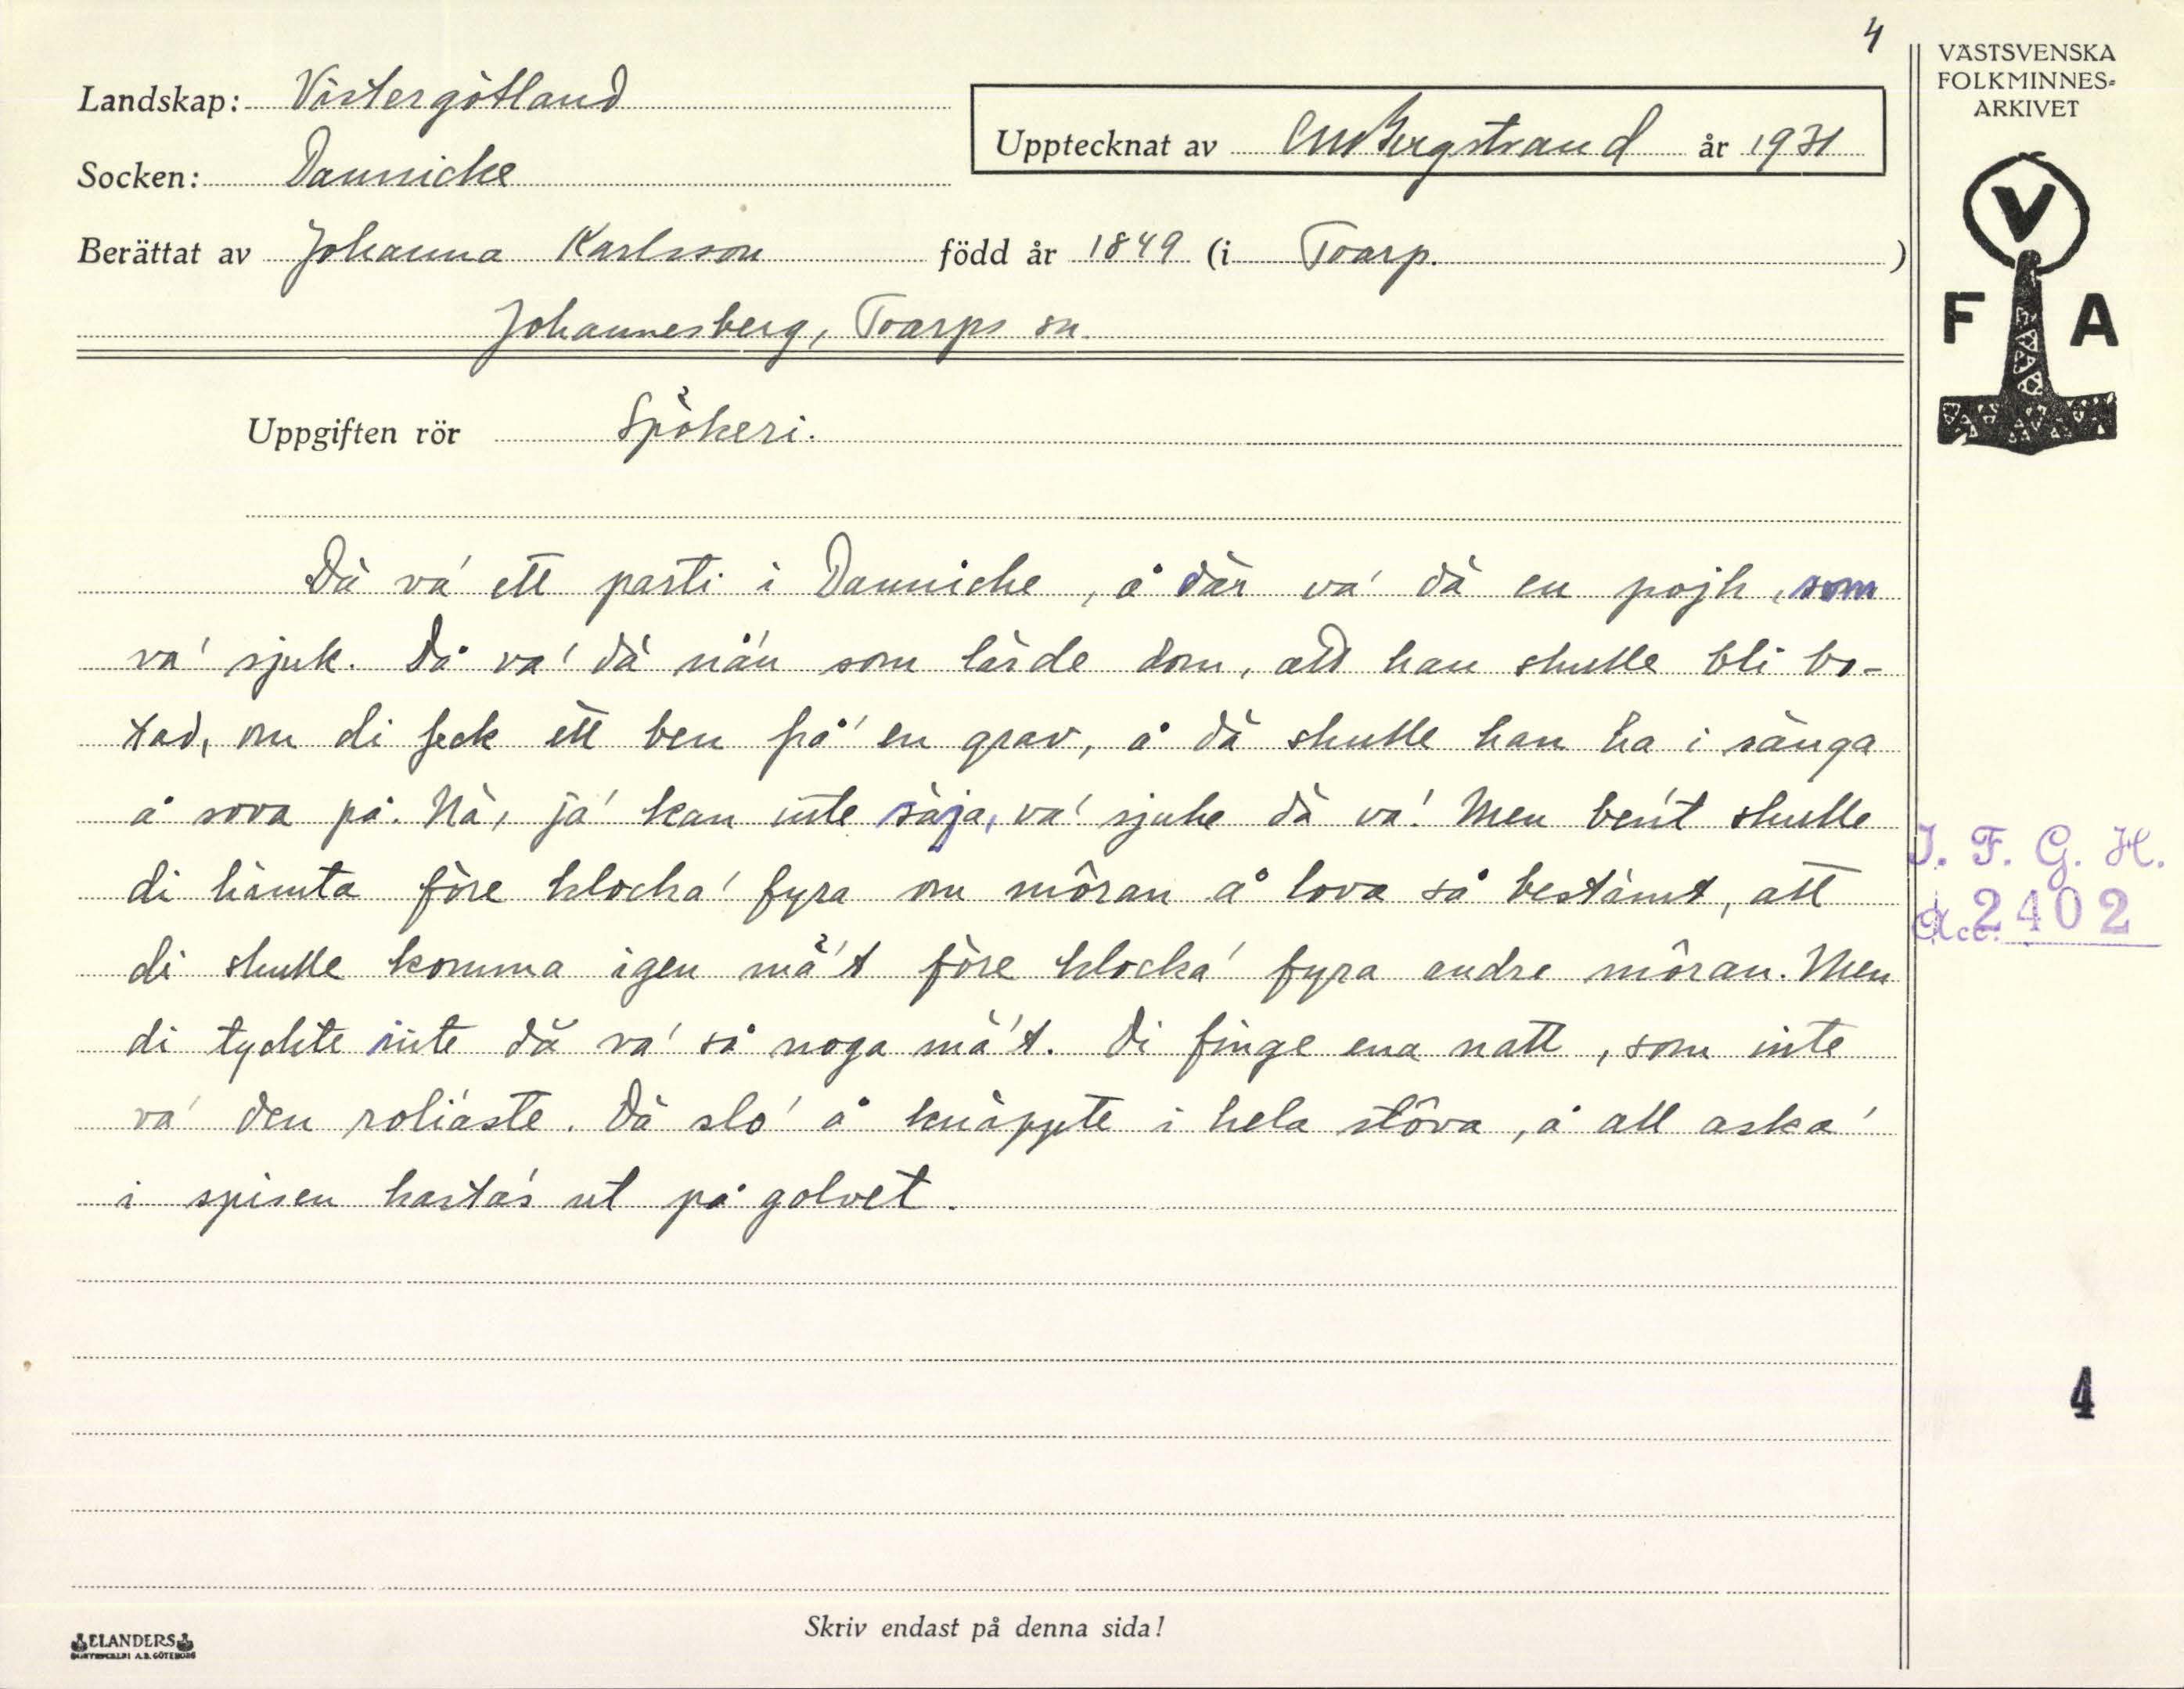 4
Landskap: Västergötland
Socken: Dannicke
Upptecknat av C M Bergstrand år 1931
Berättat av Johanna Karlsson född år 1849 (i Toarp.)
Johannesberg, Toarps sn.
Uppgiften rör Spökeri.
Dä va' ett parti i Dannicke, å där va' dä en pojk, som
va' sjuk. Då va' dä nå'n som lärde dom, att han skulle bli bo-
tad, om di feck ett ben frå' en grav, å dä skulle han ha i sänga
å sova på. Nä, ja' kan inte säja, va' sjuke dä va'. Men be'n't skulle
di hämta före klocka' fyra om môran å lova så bestämt, att
di skulle komma igen mä't före klocka' fyra andre môran. Men
di tyckte inte dä va' så noga mä't. Di finge ena natt, som inte
va' den roliaste. Dä slo' å knäppte i hela stôva, å all aska'
i spisen kasta's ut på golvet.
Skriv endast på denna sida!
ELANDERS
BOKTRYCKERI A.B. GÖTEBORG
VÄSTSVENSKA
FOLKMINNES-
ARKIVET
V
F A
I. F. G. H.
Acc. 2402
4